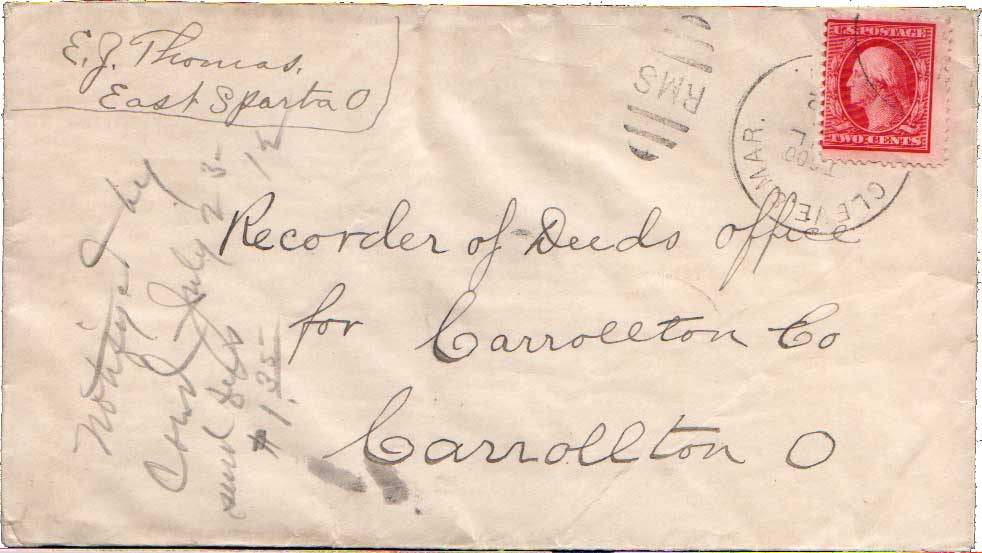 E. J. Thomas.
East Sparta O
RMS
CLEVE MAR.
U.S. POSTAGE
TWO CENTS
Recorder of Deeds office
for Carrollton Co
Carrollton O
Notifyed by
July 23- 12
send
$1.35